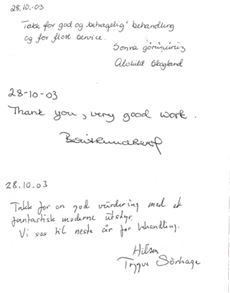 28.10.03
Takk for god og behagelig behandling
og for flott service.
28-10-03
Thank you, very good work.
28.10.03
Takk for en god vurdering med et
fantastisk moderne utstyr.
Vi sas til neste år for behandling.
Hilsen
Trygve